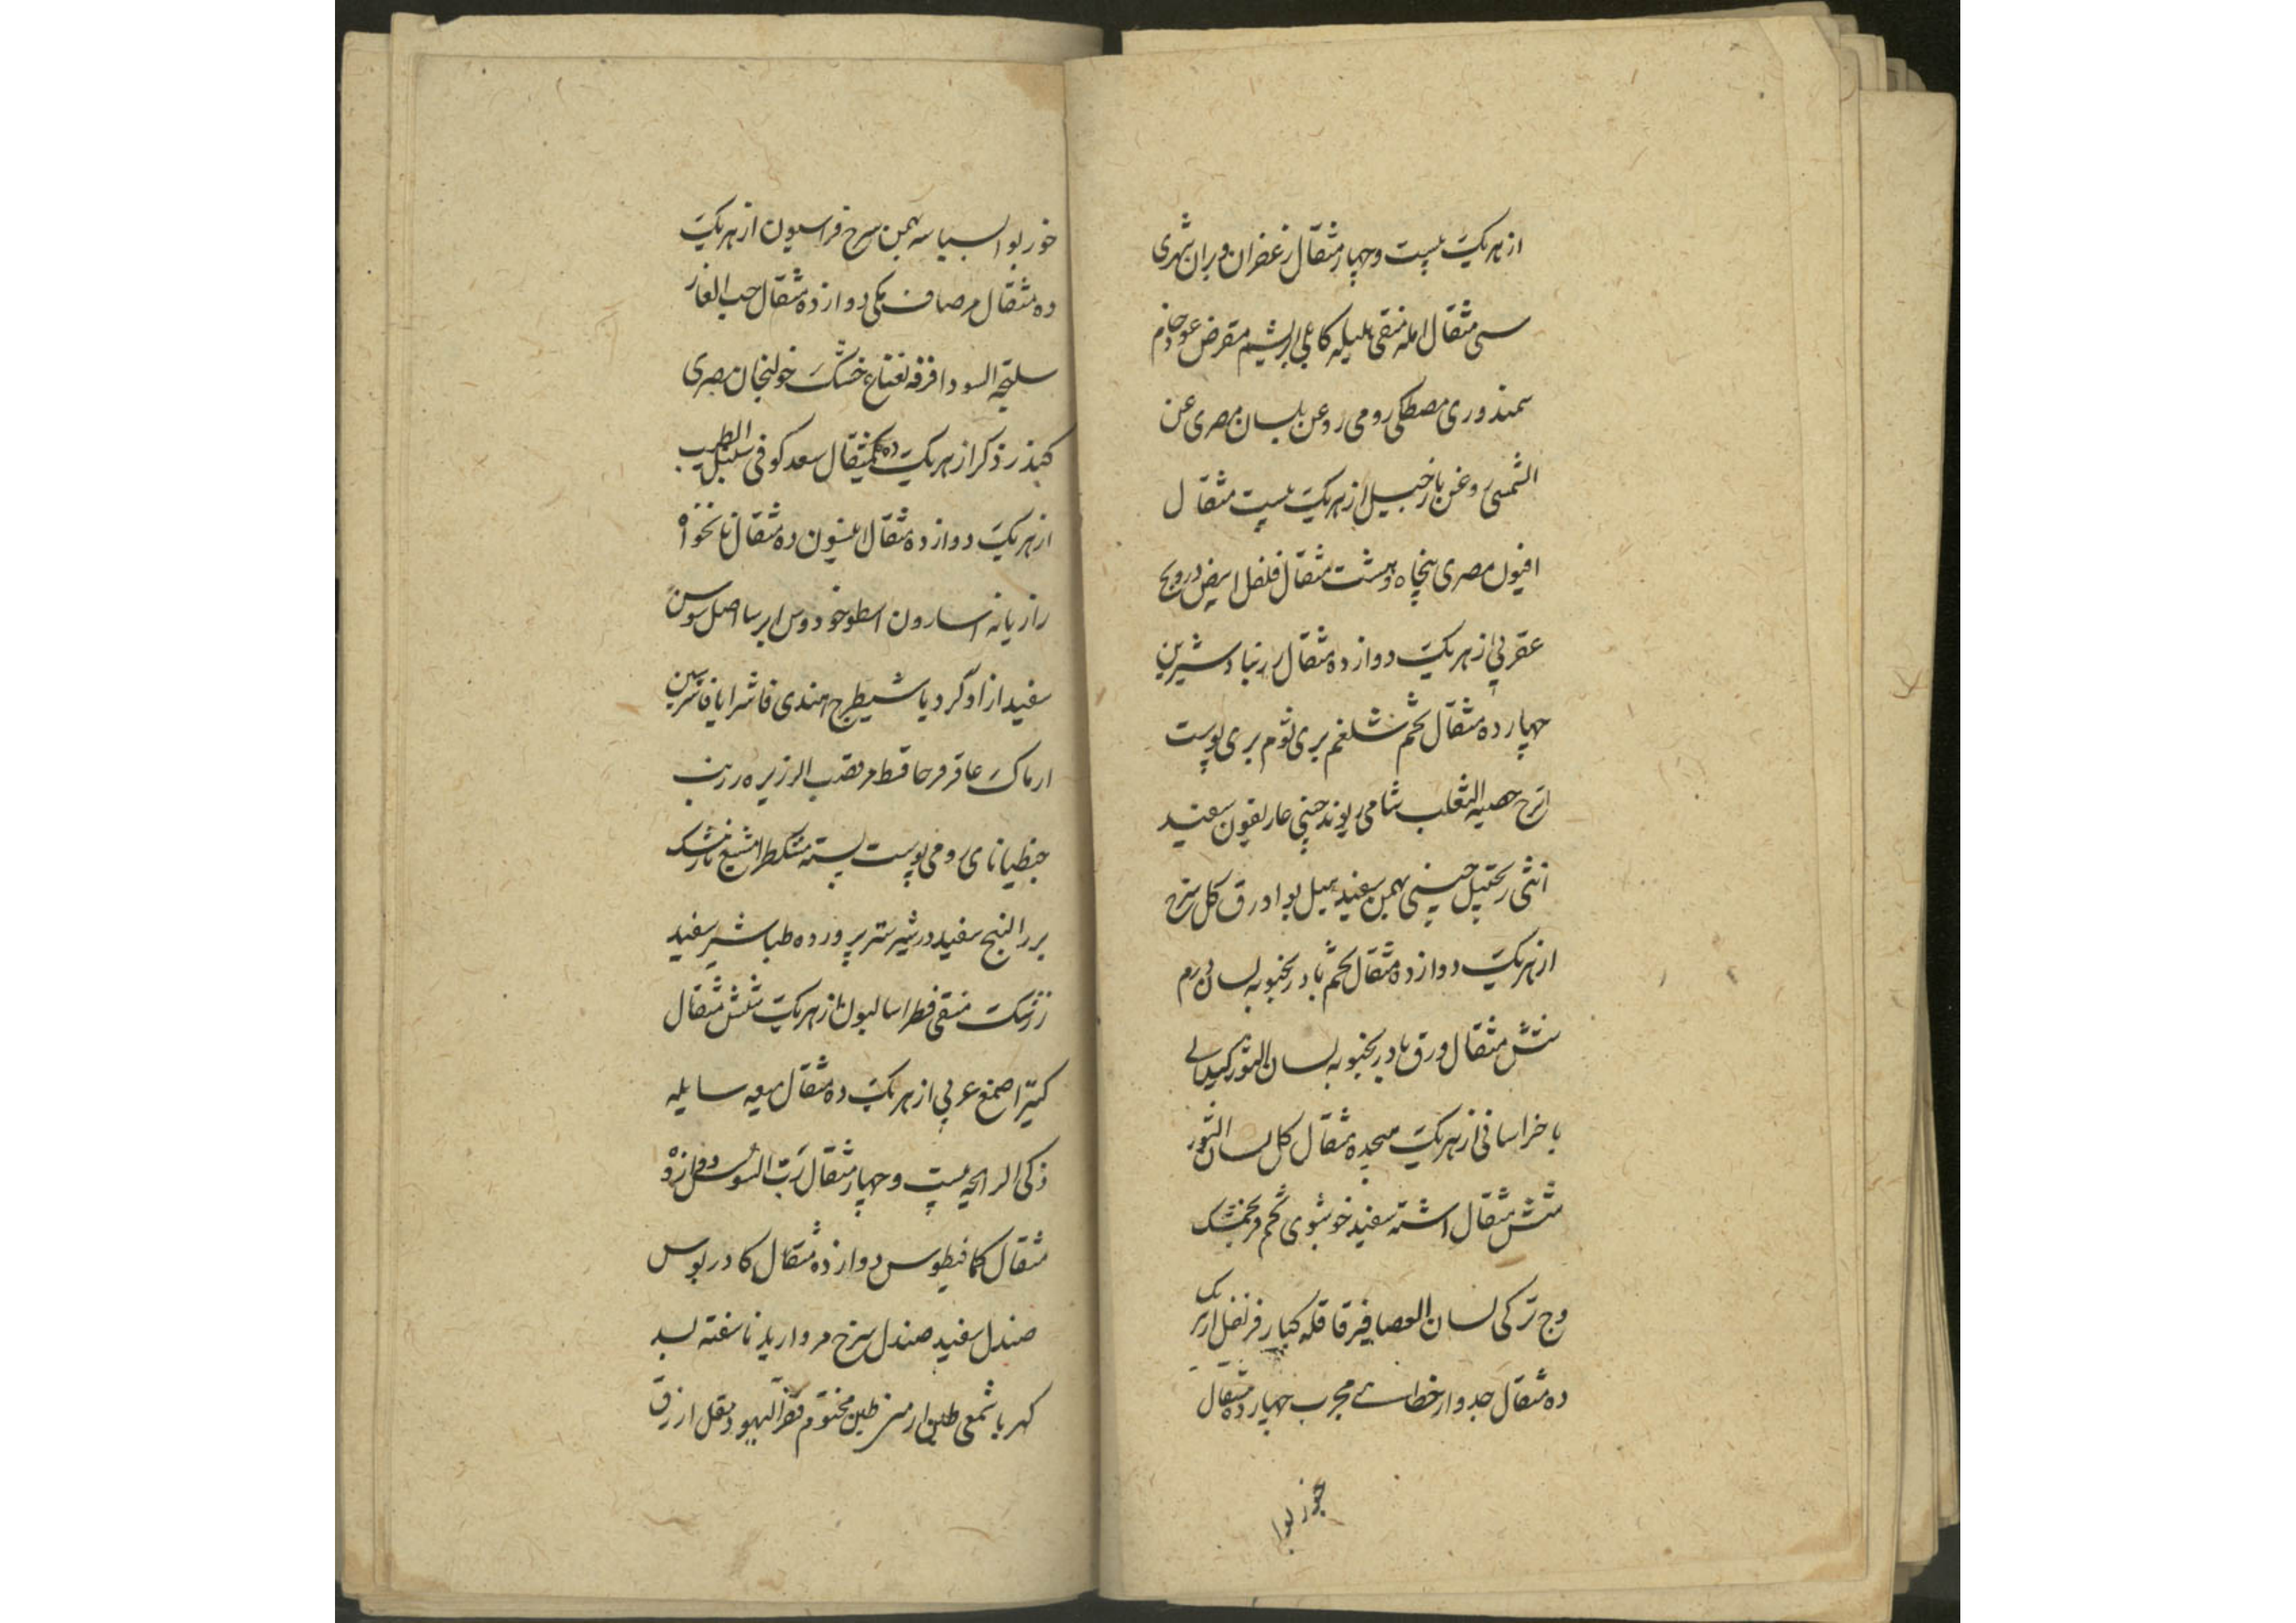 از هر یک بیست و چهار مثقال زعفران
سی مثقال امله منقی هلیله کابلی ابریشم مقرض عود خام
سمندوری مصطکی رومی روغن بلسان مصری
الشمس روغن از هر یک بیست مثقال
افیون مصری پنجاه و هشت مثقال فلفل ابیض درونج
عقربی از هر یک دوازده مثقال زرنباد شیرین
چهارده مثقال تخم شلغم بری ثوم بری پوست
اترج خصیه الثعلب شامی ریوند چینی غاریقون سفید
انثی چینی بهمن سفید هیل بوا ورق کل سرخ
از هر یک دوازده مثقال تخم بادرنجبویه لسان
شش مثقال ورق بادرنجبویه لسان الثور کیلانی
یا خراسانی از هر یک هیجده مثقال کل لسان الثور
شش مثقال اشنه سفید خوشبوی تخم فرنجمشک
وج ترکی لسان العصافیر قاقله کبار قرنفل از هر یک
ده مثقال جدوار خطائے مجرب چهارده مثقال
جوز بوا
جوز بوا بسباسه بهمن سرخ فراسیون از هر یک
ده مثقال مر صاف مکی دوازده مثقال حب الغار
سلیخه السودا قرفه نعناع خشک خولنجان مصری
کندر ذکر از هر یک ده مثقال سعد کوفی سنبل الطیب
از هر یک دوازده مثقال انیسون ده مثقال نانخواه
رازیانه اسارون اسطوخودوس ایرسا اصل سوسن
سفید ازاد کرد یا شیطرج هندی فاشرا یا فاشرستین
ارماک عاقرقرحا قسط مر قصب الذریره زرنب
جنطیانای رومی پوست پسته مشکطرامشیع نارمشک
بزر البنج سفید در شیر شتر پرورده طباشیر سفید
زرشک منقی فطراسالیون از هر یک شش مثقال
کتیرا صمغ عربی از هر یک ده مثقال میعه سایله
ذکی الرایحه بیست و چهار مثقال رب السوس دوازده
مثقال کمافیطوس دوازده مثقال کمادریوس
صندل سفید صندل سرخ مروارید ناسفته بسد
کهربا شمعی طین ارمنی طین مختوم قفر الیهود مقل ازرق